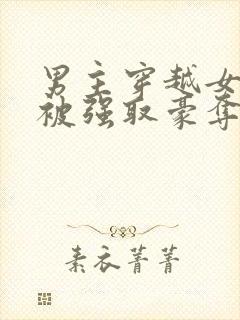 男主穿越女
被强取豪夺
素衣菁菁